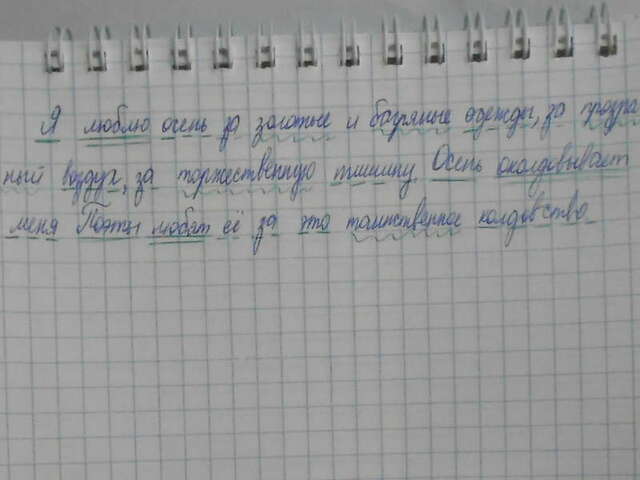 Я люблю осень за золотые и багряные одежды, за прозра
ный воздух, за торжественную тишину Осень околдовывает
меня Поэты любят её за это таинственное колдовство